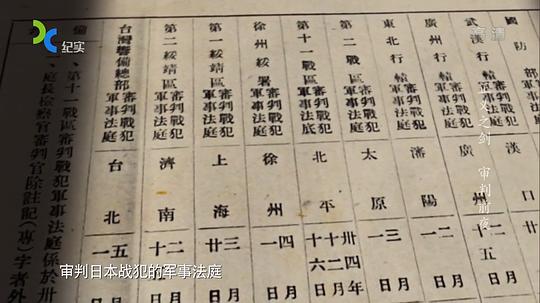 CC 纪实
高清
國防部
武漢行轅審判戰犯軍事法庭 漢口
廣州行轅審判戰犯軍事法庭 廣州
東北行轅審判戰犯軍事法庭 瀋陽
第二戰區審判戰犯軍事法庭 太原
第十一戰區審判戰犯軍事法庭 北平 卅四年十二月十六日
徐州綏署審判戰犯軍事法庭 徐州 四月一日
第一綏靖區審判戰犯軍事法庭 上海 三月廿日
第二綏靖區審判戰犯軍事法庭 濟南
台灣警備總部審判戰犯軍事法庭 台北 五月一日
備
一、第十一戰區審判戰犯軍事法庭係於卅
一、庭長檢察官審判官除註記(專)字者外
之剑 审判前夜
审判日本战犯的军事法庭